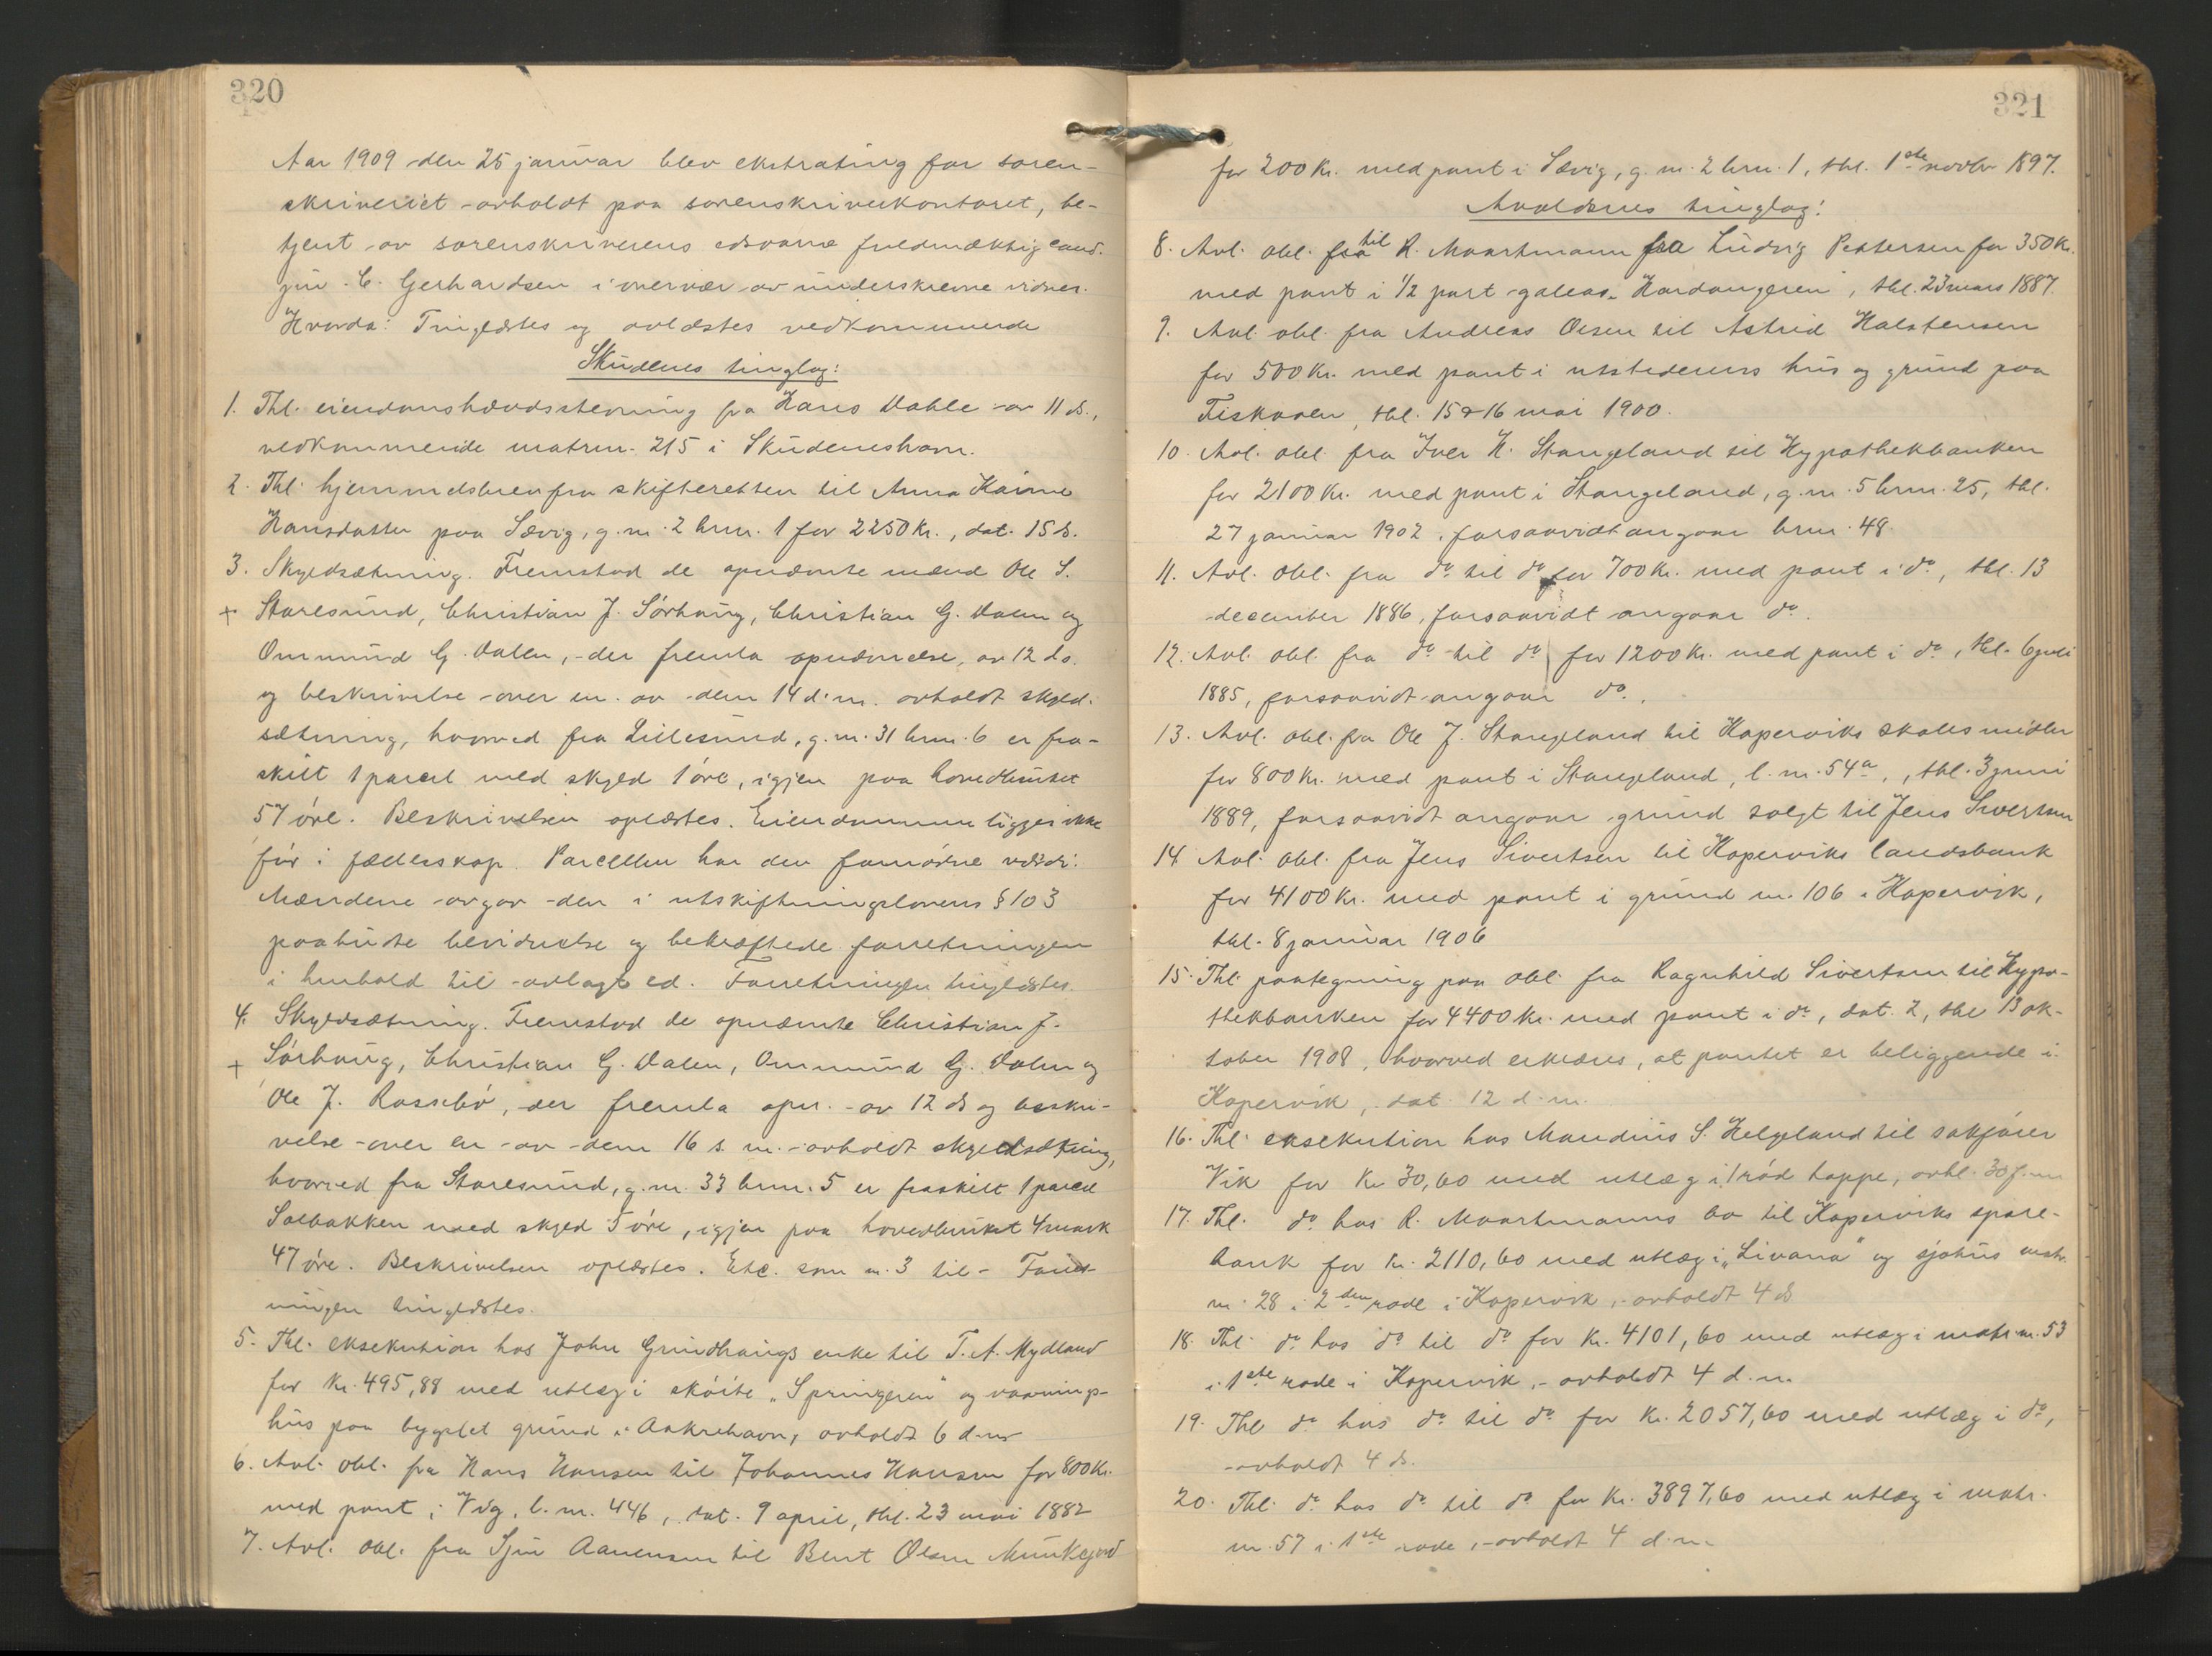 320
Aar 1909 den 25 januar blev ekstrating for soren-
skriveriet avholdt paa sorenskriverkontoret, be-
tjent av sorenskriverens edsvorne fuldmægtig cand.
jur. C. Gerhardsen i nærvær av underskrevne vidner.
Hvorda: Tinglæstes og avlæstes vedkommende
Skudenes tinglag:
1. Thl. eiendomshævdsstevning fra Hans Dahle av 11 ds.,
vedkommende matrnr. 215 i Skudeneshavn.
2. Thl. hjemmelsbrev fra skifteretten til Anna Karine
Hansdatter paa Sævig, g.nr. 2 brnr. 1 for 2250 kr., dat. 15 ds.
3. Skyldsætning. Fremstod de opnævnte mænd Ole S.
+ Staresund, Christian J. Sørhaug, Christian G. Dalen og
Ommund G. Dalen, der fremla opnævnelse av 12 ds.
og beskrivelse over en av dem 14 d.m. avholdt skyld-
sætning, hvorved fra Lillesund, g.nr. 31 brnr. 6 er fra-
skilt 1 parcel med skyld 1 øre, igjen paa hovedbruket
57 øre. Beskrivelsen oplæstes. Eiendommene ligger ikke
før i fælleskap. Parcellen har den fornødne værdi.
Mændene avgav den i utskiftningslovens § 103
paabudte bevidnelse og bekræftede forretningen
i henhold til avlagt ed. Forretningen tinglæstes.
4. Skyldsætning. Fremstod de opnævnte Christian J.
+ Sørhaug, Christian G. Dalen, Ommund G. Dalen og
Ole J. Rossebø, der fremla opn. av 12 ds og beskri-
velse over en av dem 16 s.m. avholdt skyldsætning,
hvorved fra Staresund, g.nr. 33 brnr. 5 er fraskilt 1 parcel
Solbakken med skyld 5 øre, igjen paa hovedbruket 4 mark
47 øre. Beskrivelsen oplæstes. Etc. som nr. 3 til - Forret-
ningen tinglæstes.
5. Thl. eksekution hos John Grindhaugs enke til T. A. Mydland
for kr. 495,88 med utlæg i skøite "Springeren" og vaanings-
hus paa bygslet grund i Aakrehavn, avholdt 6 d.m
6. Avl. obl. fra Hans Hansen til Johannes Hansen for 800 kr.
med pant i Vig, l.nr. 446, dat. 9 april, thl. 23 mai 1882
7. Avl. obl. fra Sjur Aanensen til Bent Olsen Munkejord
321
for 200 kr. med pant i Sævig, g.nr. 2 brnr. 1, thl. 1ste novbr 1897.
Avaldsnes tinglag:
8. Avl. obl. fra til R. Maartmann fra Ludvig Pettersen for 350 kr.
med pant i 1/2 part galeas "Hardangeren", thl. 23 mars 1887.
9. Avl. obl. fra Andreas Olsen til Astrid Halstensen
for 500 kr. med pant i utstederens hus og grund paa
Fiskaaen, thl. 15 & 16 mai 1900.
10. Avl. obl. fra Iver H. Stangeland til Hypothekbanken
for 2100 kr. med pant i Stangeland, g.nr. 5 brnr. 25, thl.
27 januar 1902, forsaavidt angaar brnr. 48.
11. Avl. obl. fra do til do for 700 kr. med pant i do, thl. 13
december 1886, forsaavidt angaar do.
12. Avl. obl. fra do til do for 1200 kr. med pant i do, thl. 6 juli
1885, forsaavidt angaar do.
13. Avl. obl. fra Ole J. Stangeland til Kopervik skoles midler
for 800 kr. med pant i Stangeland, l.nr. 54a, thl. 3 juni
1889, forsaavidt angaar grund solgt til Jens Sivertsen
14 Avl. obl. fra Jens Sivertsen til Koperviks landsbank
for 4100 kr. med pant i grund nr. 106 i Kopervik,
thl. 8 januar 1906
15. Thl. paategning paa obl. fra Ragnhild Sivertsen til Hypo-
thekbanken for 4400 kr. med pant i do, dat. 2, thl 13 ok-
tober 1908, hvorved erklæres, at pantet er beliggende i
Kopervik, dat. 12 d.m.
16. Thl. eksekution hos Maudius S. Helgeland til sakfører
Vik for kr 30,60 med utlæg i 1 rød hoppe, avhl. 30 f.m
17. Thl. do hos R. Maartmanns bo til Koperviks spare-
bank for kr. 2110,60 med utlæg i "Livana" og sjøhus matr.
nr. 28 i 2den rode i Kopervik, avholdt 4 ds
18. Thl. do hos do til do for kr. 4101,60 med utlæg i matr.nr. 53
i 1ste rode i Kopervik, - avholdt 4 d.m.
19. Thl do hos do til do for kr. 2057,60 med utlæg i do,
avholdt 4 ds.
20. Thl. do hos do til do for kr. 3897,60 med utlæg i matr.
nr. 57 i 1ste rode, - avholdt 4 d.m.